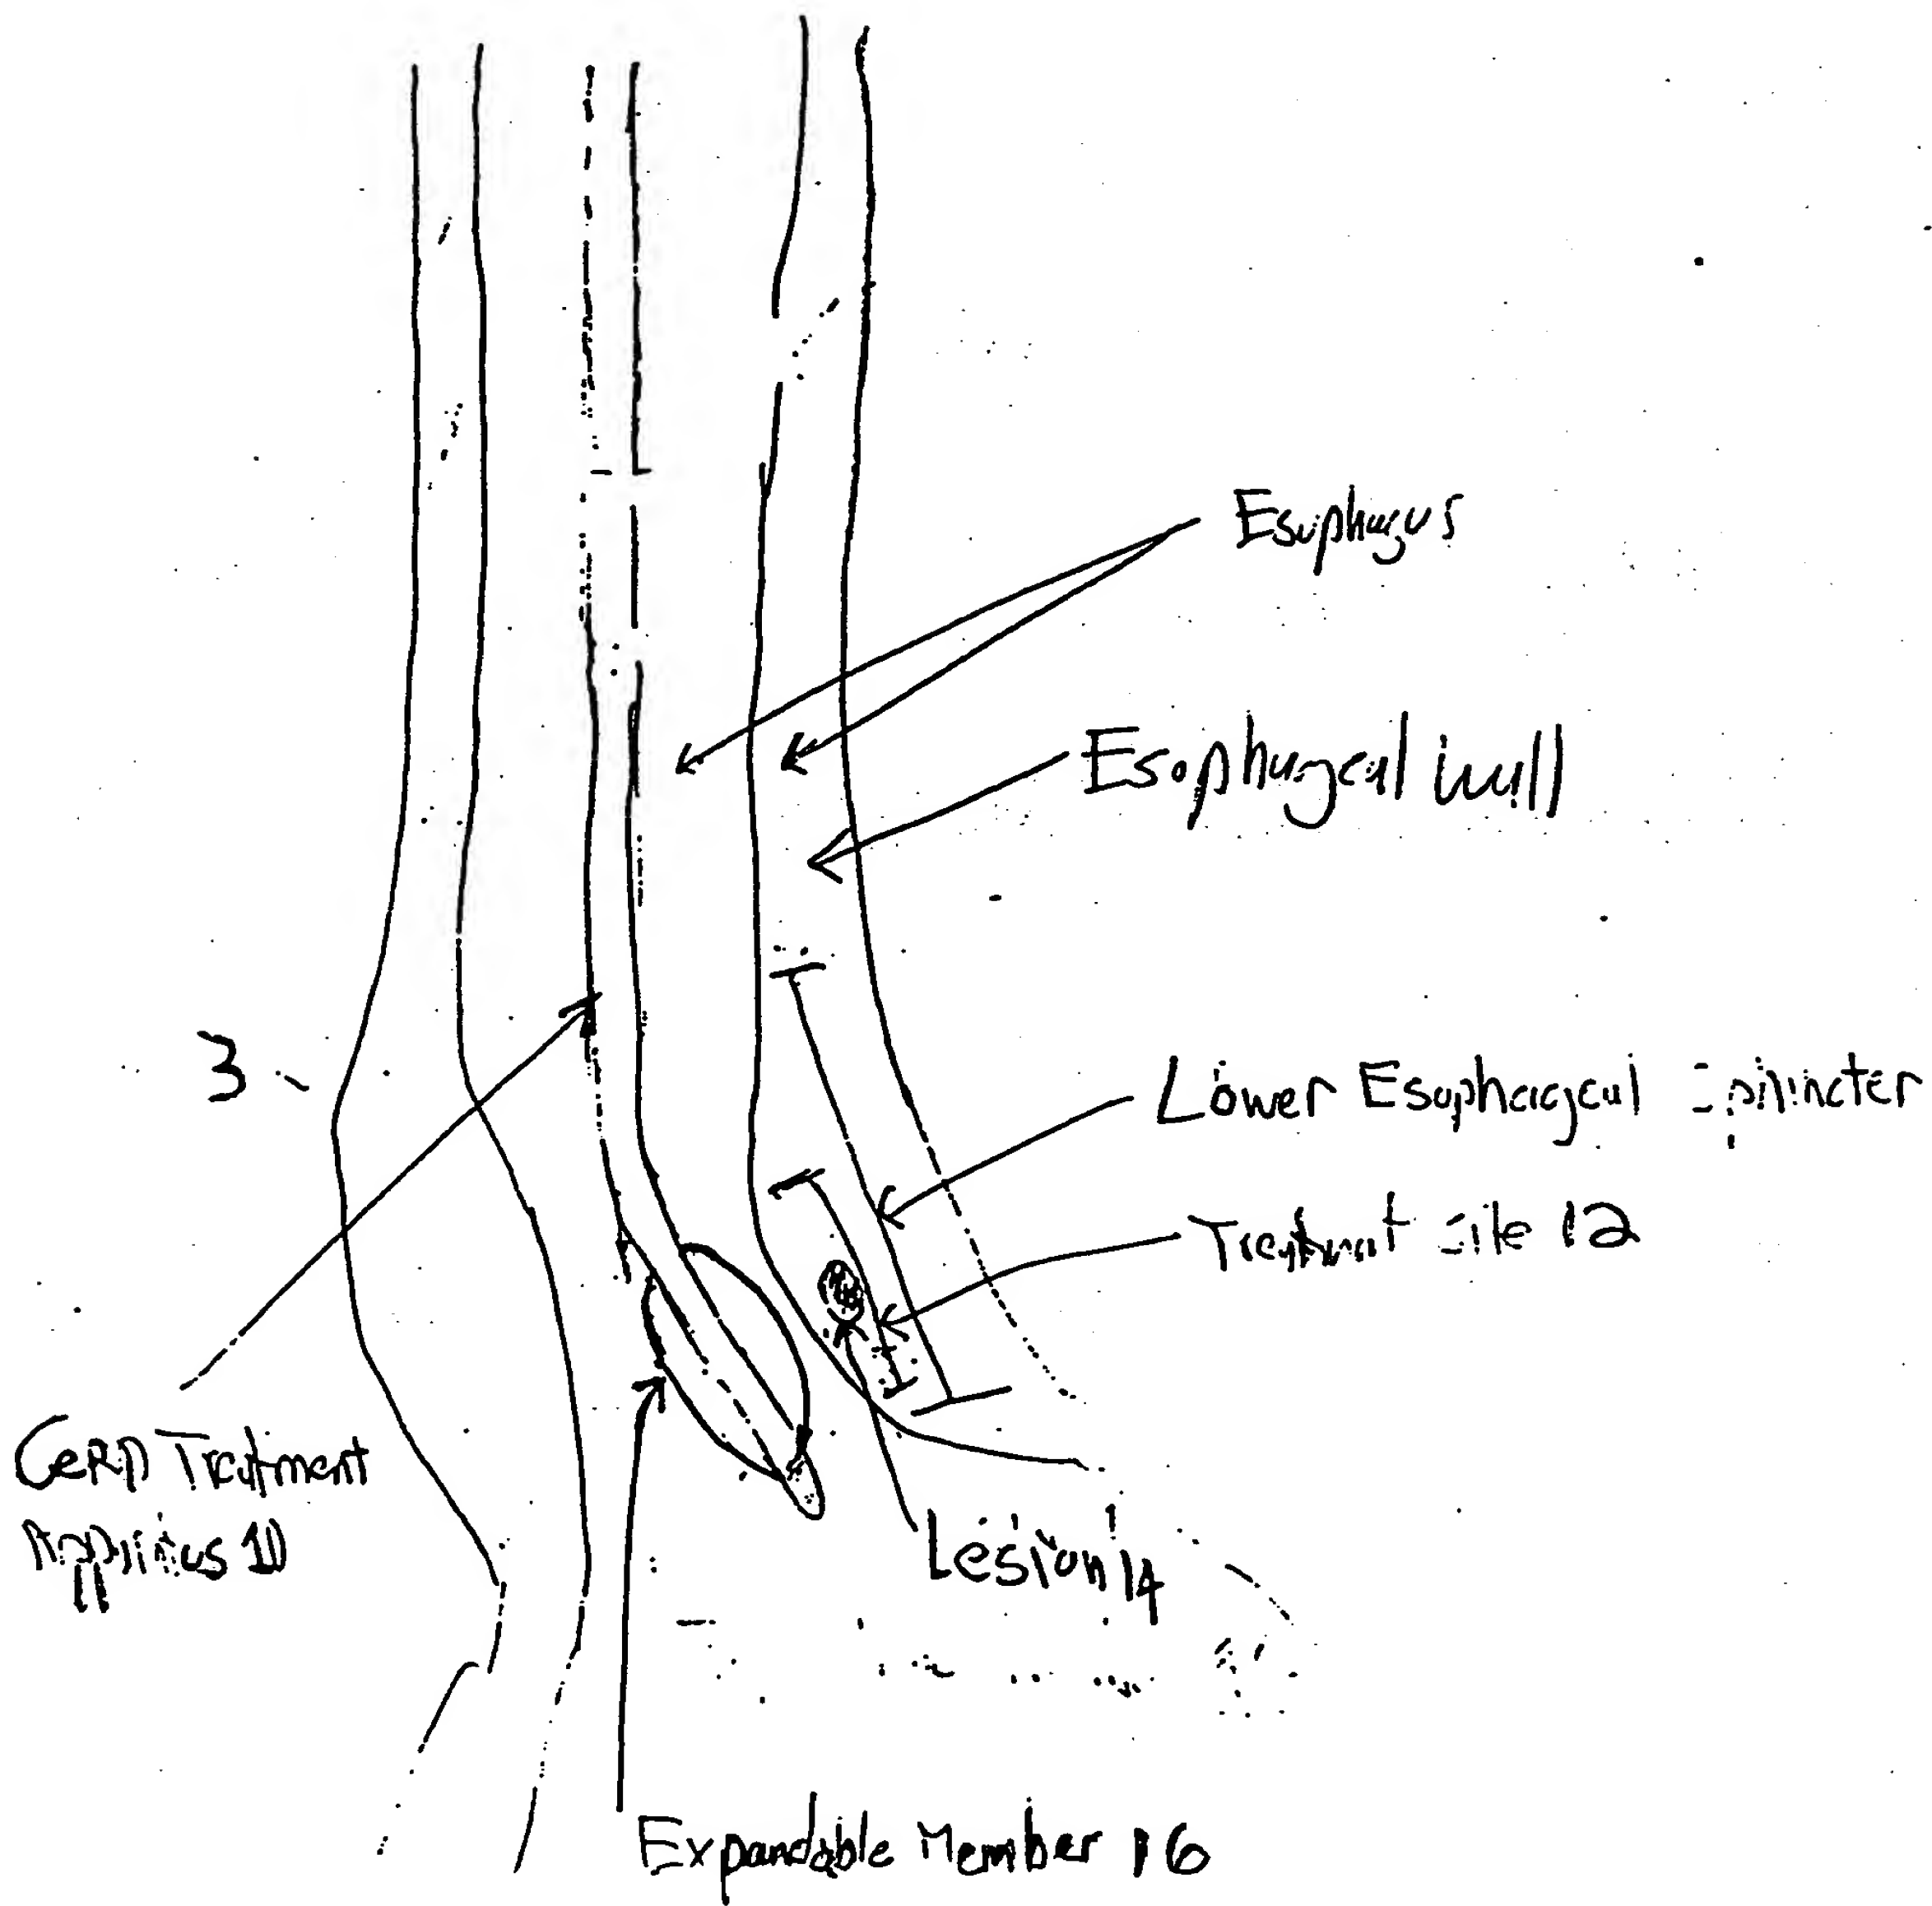 Esophagus
Esophageal wall
3
Lower Esophageal Sphincter
Treatment Site 12
GERD Treatment
Apparatus 10
Lesion 14
Expandable Member 16